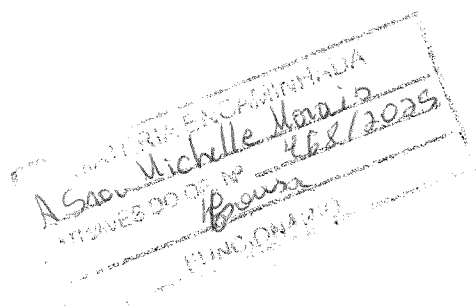 MATÉRIA ENCAMINHADA
A Snra Michelle Morais
ATRAVÉS DO OF. Nº 468/2025
FUNCIONÁRIO